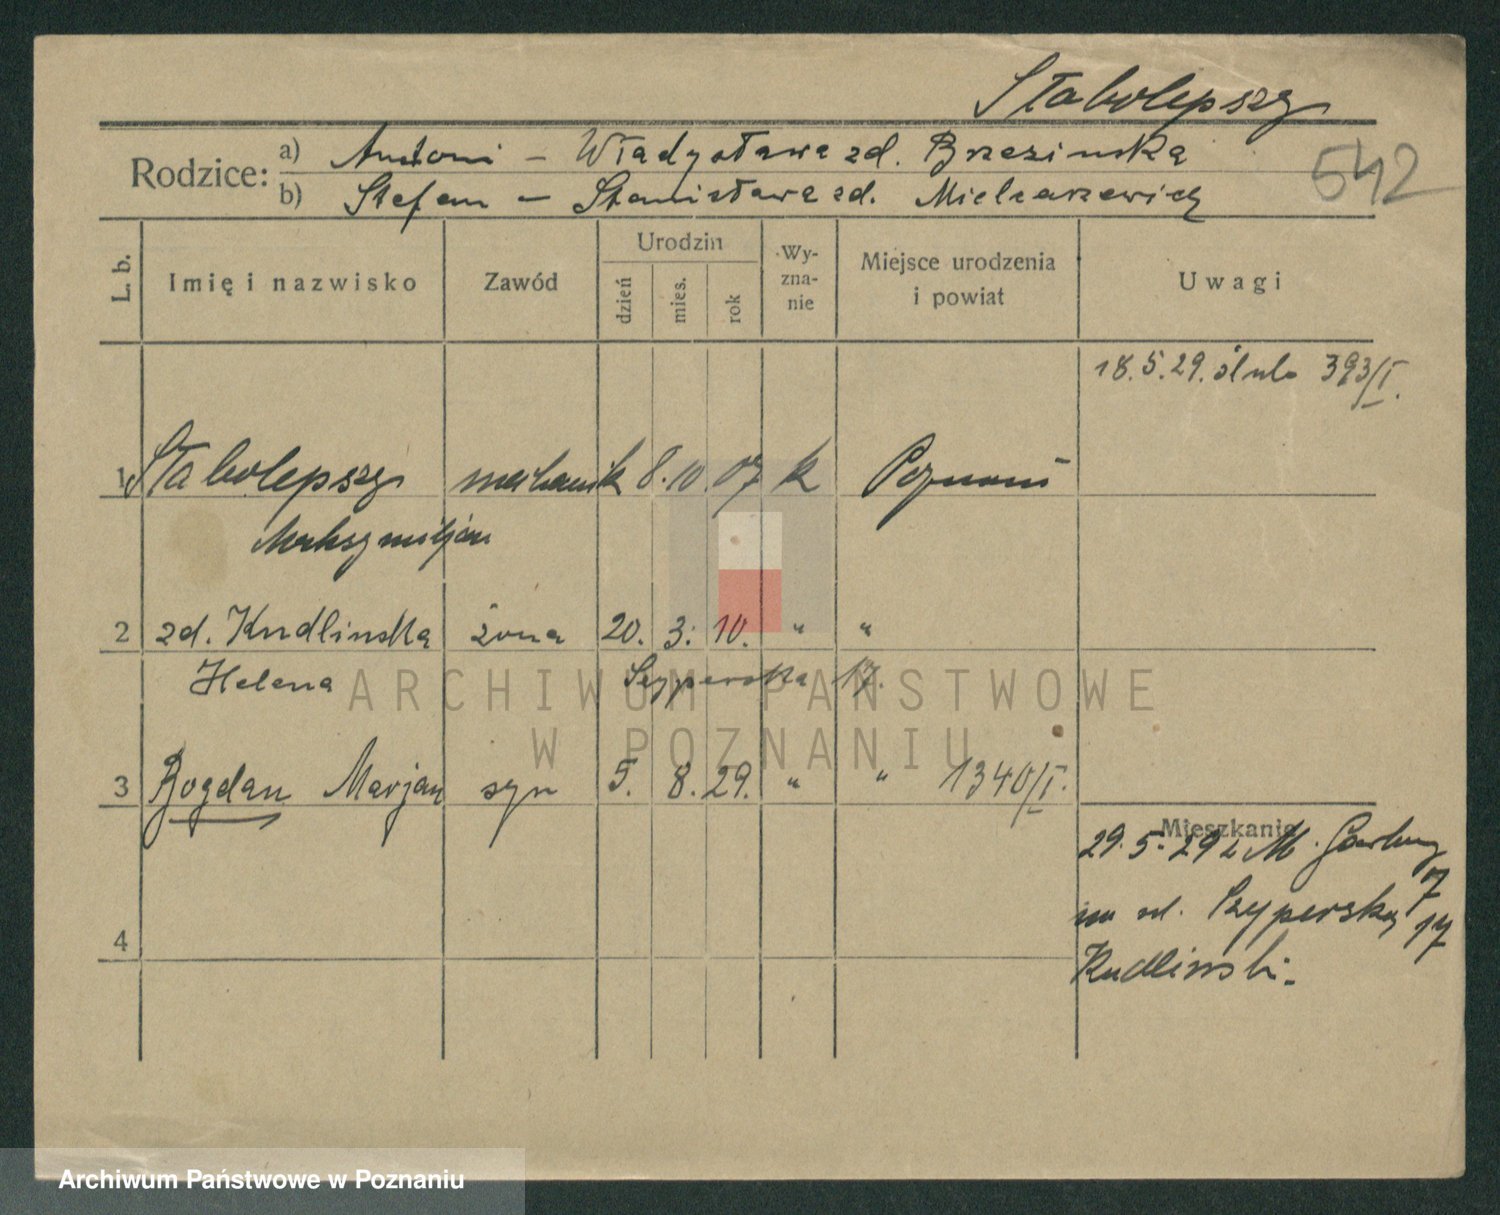 Słabolepszy
Rodzice: a) Antoni – Władysława zd. Brzezinska
b) Stefan – Stanisława zd. Mielcarzewicz
542
L. b. Imię i nazwisko Zawód Urodzin dzień mies. rok Wy-zna-nie Miejsce urodzenia i powiat Uwagi
18.5.29. ślub 393/I.
1 Słabolepszy mechanik 8. 10. 07 k Poznań
Maksymiljan
2 zd. Kudlinska żona 20. 3. 10. " "
Helena Szyperska 17.
ARCHIWUM PAŃSTWOWE
W POZNANIU
3 Bogdan Marjan syn 5. 8. 29. " " 1340/I.
Mieszkanie
29.5.29 z M. Garbary 7
na ul. Szyperską 17
4
Kudlinski.
Archiwum Państwowe w Poznaniu